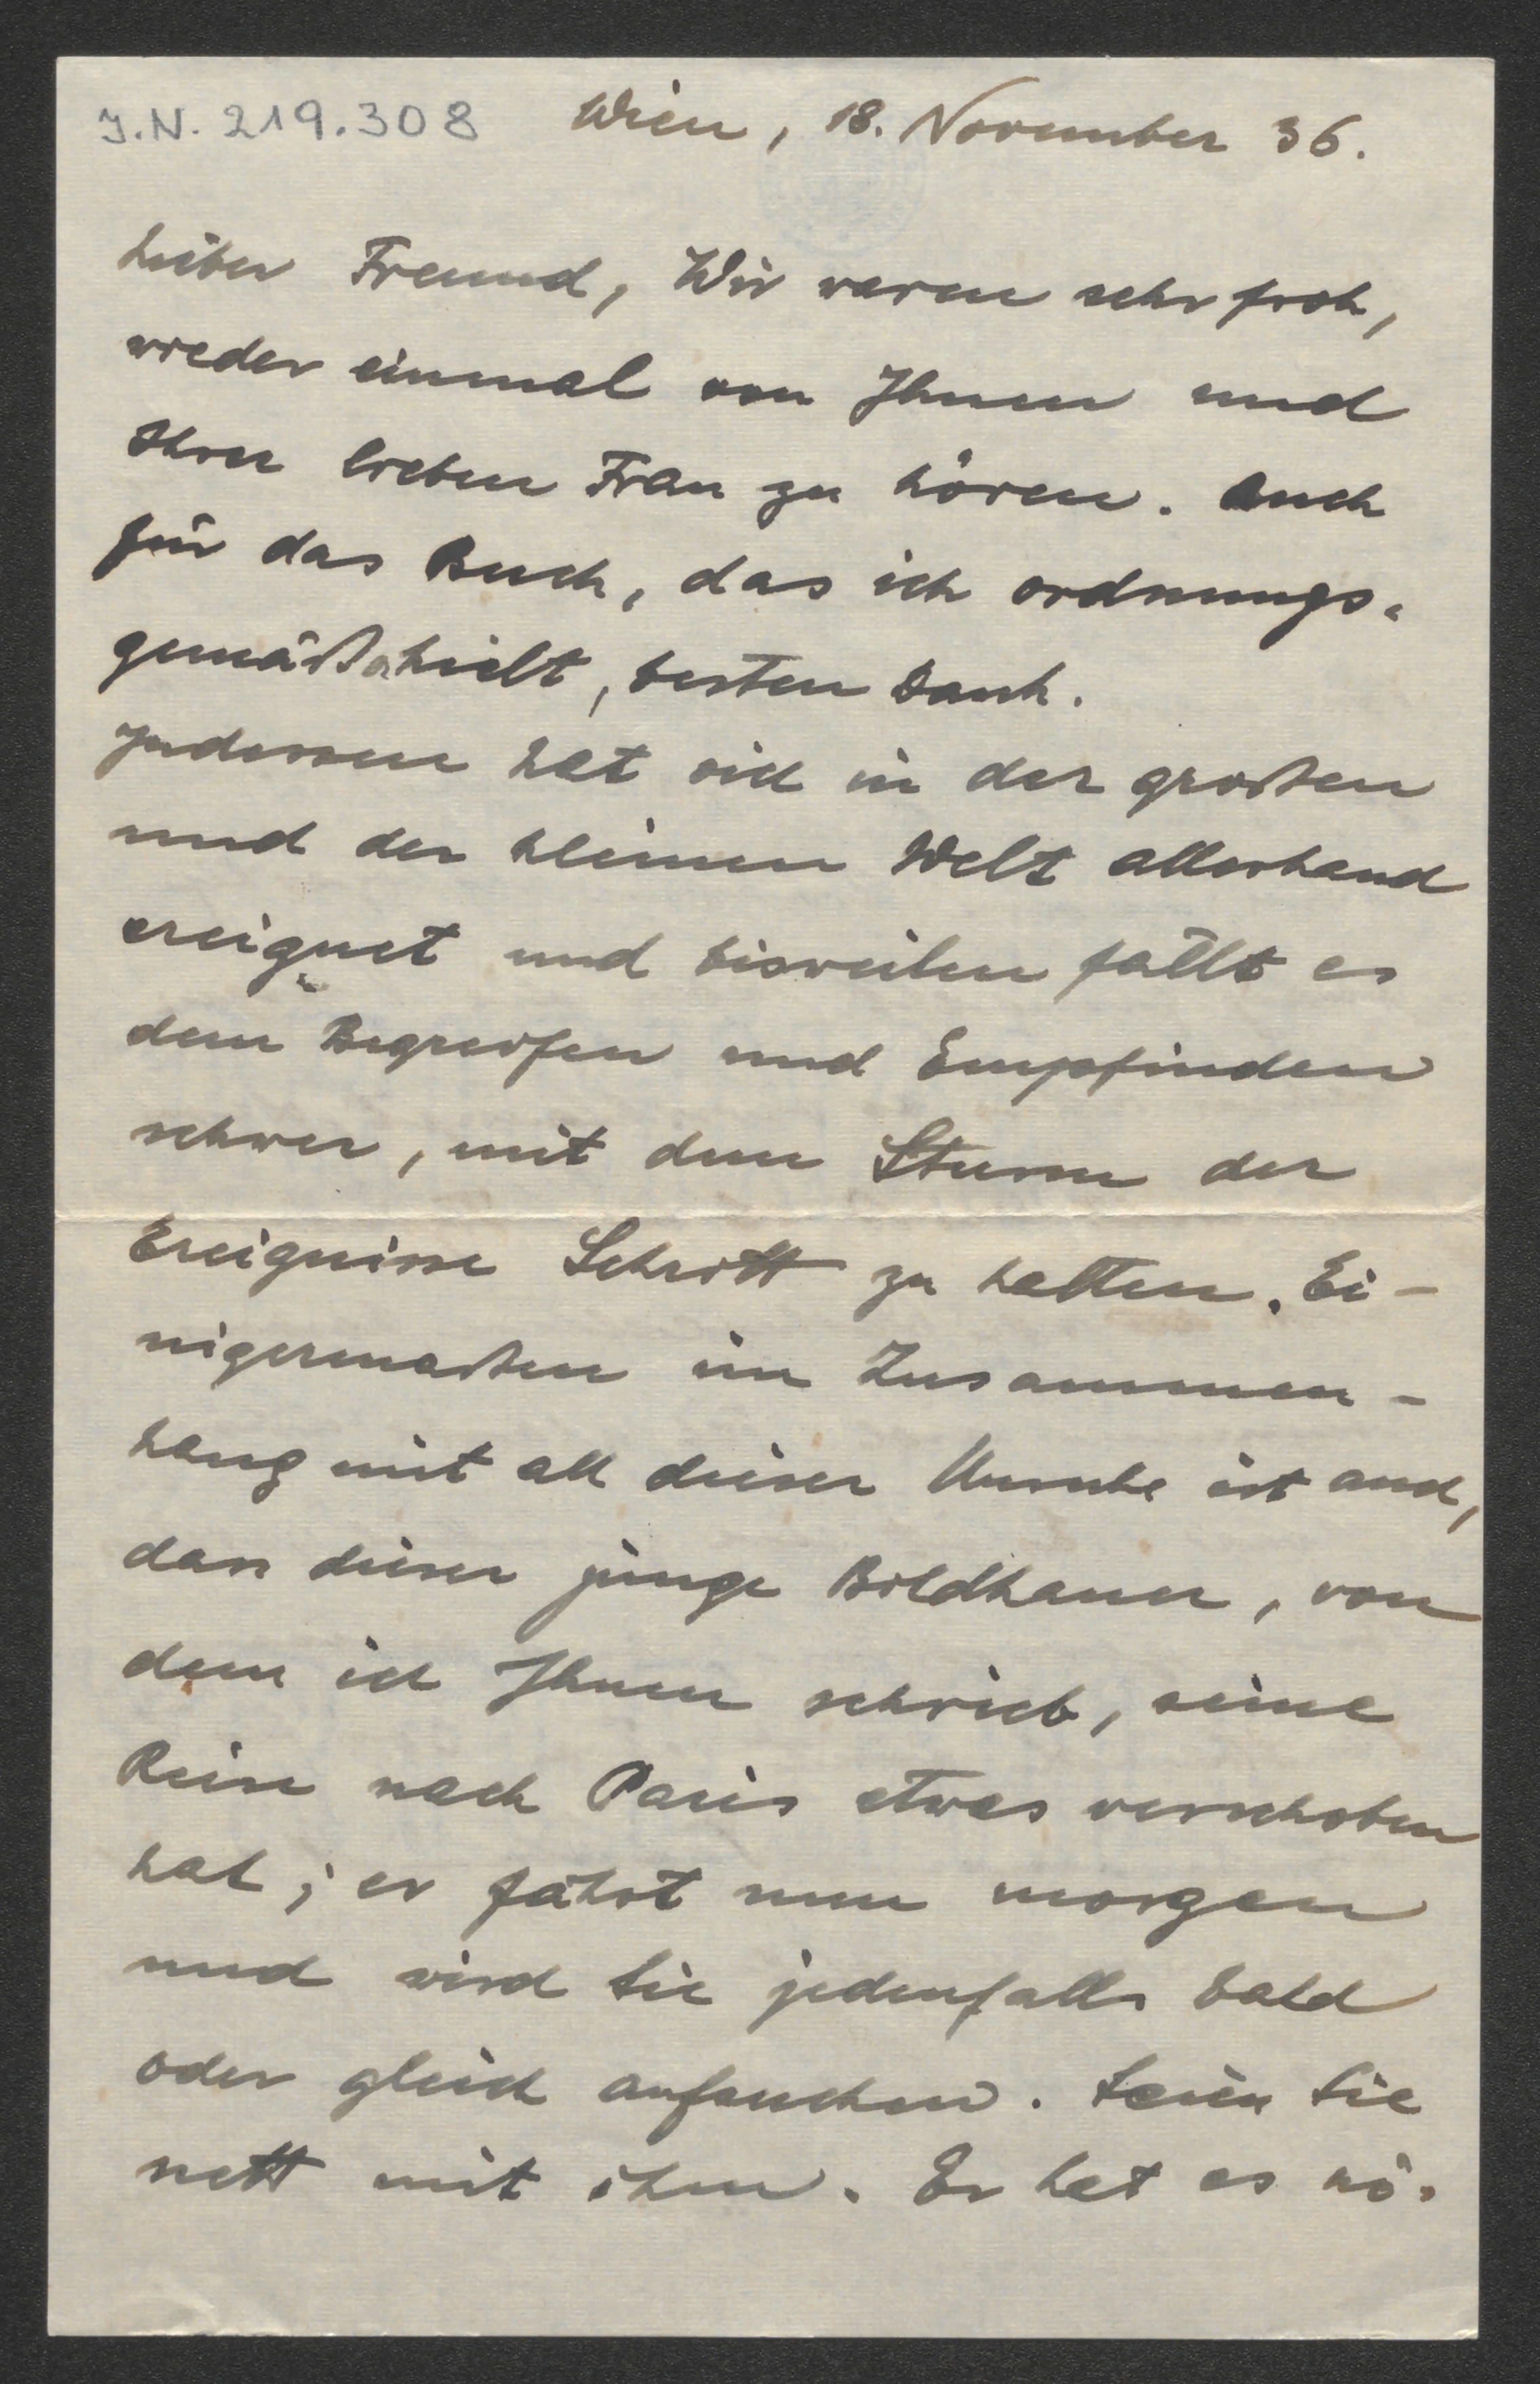 J.N. 219.308 Wien, 18. November 36.
Lieber Freund, Wir waren sehr froh,
wieder einmal von Ihnen und
Ihrer lieben Frau zu hören. Auch
für das Buch, das ich ordnungs-
gemäß erhielt, besten Dank.
Indessen hat sich in der großen
und der kleinen Welt allerhand
ereignet und bisweilen fällt es
dem Begreifen und Empfinden
schwer, mit dem Sturm der
Ereignisse Schritt zu halten. Ei-
nigermaßen im Zusammen-
hang mit all dieser Unruhe ist auch,
dass dieser junge Bildhauer, von
dem ich Ihnen schrieb, seine
Reise nach Paris etwas verschoben
hat; er fährt nun morgen
und wird Sie jedenfalls bald
oder gleich aufsuchen. Seien Sie
nett mit ihm. Er hat es nö-